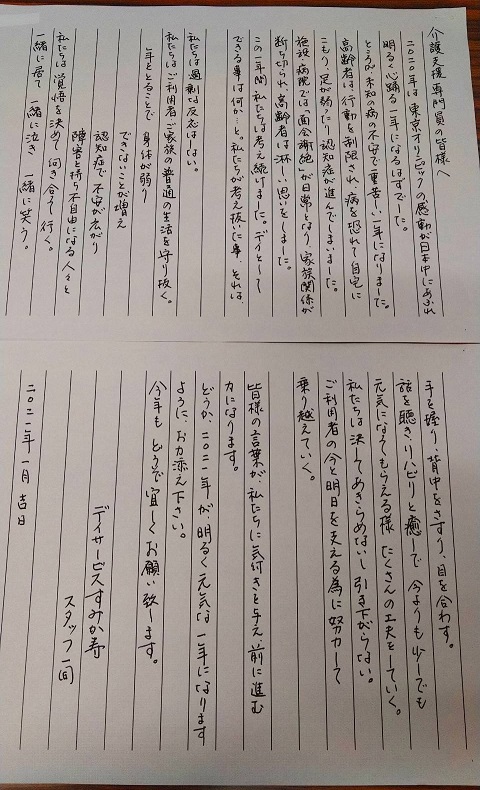 介護支援専門員の皆様へ
二〇二〇年は東京オリンピックの感動が日本中にあふれ
明るく心踊る一年になるはずでした。
ところが未知の病の不安で重苦しい一年になりました。
高齢者は行動を制限され、病を恐れて自宅に
こもり、足が弱ったり認知症が進んでしまいました。
施設・病院では「面会謝絶」が日常となり、家族関係が
断ち切られ、高齢者は淋しい思いをしました。
この一年間、私たちは考え続けました。デイとして
できる事は何か、と。私たちが考え抜いた事、それは、
私たちは過剰な反応はしない。
私たちはご利用者・ご家族の普通の生活を守り抜く。
年をとることで 身体が弱り
できないことが増え
認知症で不安が広がり
障害を持ち不自由になる人々と
私たちは覚悟を決めて向き合って行く。
一緒に居て 一緒に泣き 一緒に笑う。
手を握り、背中をさすり、目を合わす。
話を聴き、リハビリと癒しで 今よりも少しでも
元気になってもらえる様 たくさんの工夫をしていく。
私たちは決してあきらめないし引き下がらない。
ご利用者の今と明日を支える為に努力して
乗り越えていく。
皆様の言葉が、私たちに気付きを与え 前に進む
力になります。
どうか、二〇二一年が明るく元気な一年になります
ように、お力添え下さい。
今年も どうぞ宜しくお願い致します。
デイサービスすみか寿
スタッフ一同
二〇二一年一月吉日